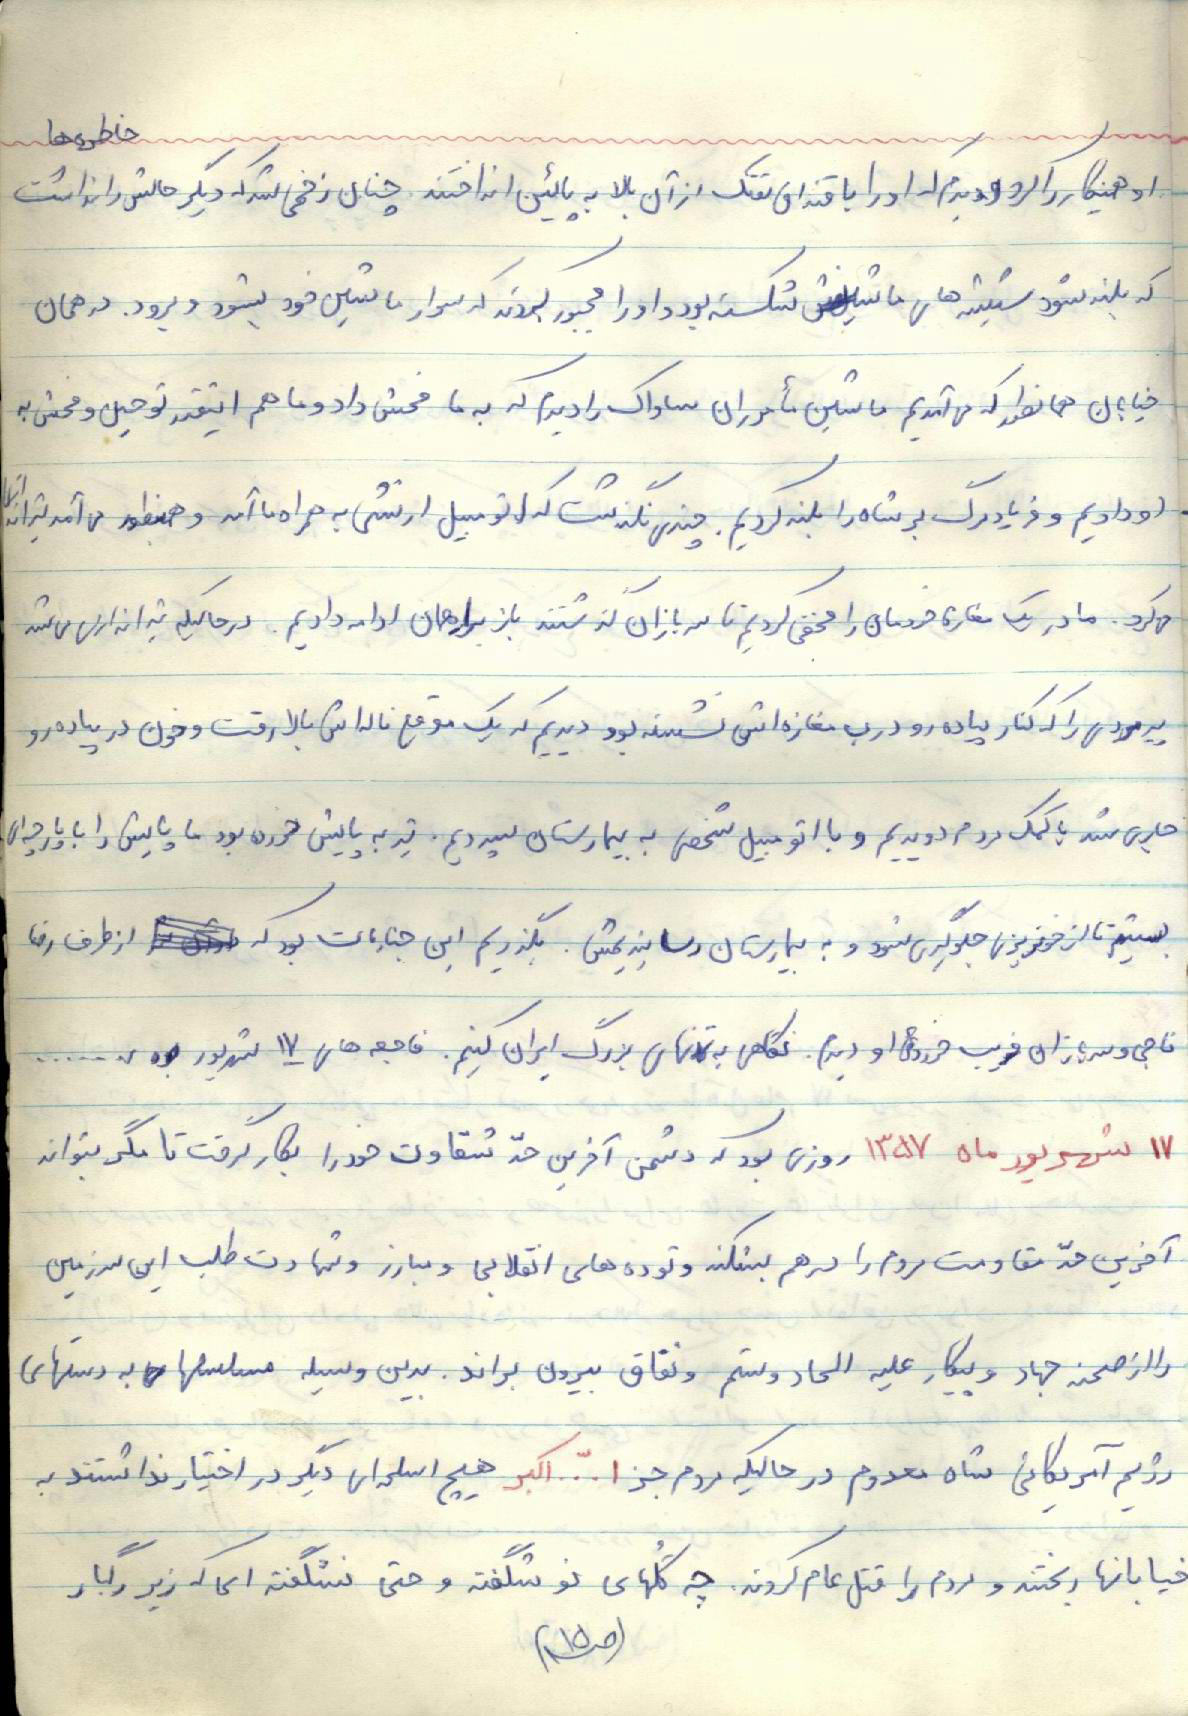 خاطره‌ها
او همینکار را کرد و دیدم که او را با قنداق تفنگ از آن بالا به پائین انداختند. چنان زخمی شد که دیگر حالش را نداشت
که بلند شود شیشه های ماشینش شکسته بود و او را مجبور کردند که سوار ماشین خود بشود و برود. در همان
خیابان همانطور که می آمدیم ماشین مأموران ساواک را دیدم که به ما فحش داد و ما هم اینقدر توحین و فحش به
او دادیم و فریاد مرگ بر شاه را بلند کردیم. چندی نگذشت که اتومبیل ارتشی به همراه ما آمد و همینطور می آمد تیراندازی
می کرد. ما در یک مغازه خودمان را مخفی کردیم تا سربازان گذشتند باز براهمان ادامه دادیم. در حالیکه تیراندازی می شد
پیرمردی را که کنار پیاده رو درب مغازه اش نشسته بود دیدیم که یک موقع ناله اش بالا رفت و خون در پیاده رو
جاری شد با کمک مردم دویدیم و با اتومبیل شخصی به بیمارستان سپردیم. تیر به پایش خورده بود ما پایش را با پارچه ای
بستیم تا از خونریزی جلوگیری شود و به بیمارستان رساندیمش. بگذریم این جنایات بود که از طرف رضا
ناجی و سربازان فریب خورده او دیدم. نگاهی به تنهای بزرگ ایران کنیم. فاجعه های ۱۷ شهریور و .......
۱۷ شهریور ماه ۱۳۵۷ روزی بود که دشمن آخرین حدّ شقاوت خود را بکار گرفت تا مگر بتواند
آخرین حدّ مقاومت مردم را درهم بشکند و توده های انقلابی و مبارز و شهادت طلب این سرزمین
را از صحنه جهاد و پیکار علیه الحاد و ستم و نفاق بیرون براند. بدین وسیله مسلسلها به دستهای
رژیم آمریکائی شاه معدوم در حالیکه مردم جز ا... اکبر هیچ اسلحه ای دیگر در اختیار نداشتند به
خیابانها ریختند و مردم را قتل عام کردند. چه گلهای نو شگفته و حتی نشگفته ای که زیر رگبار
(ص۱۵)